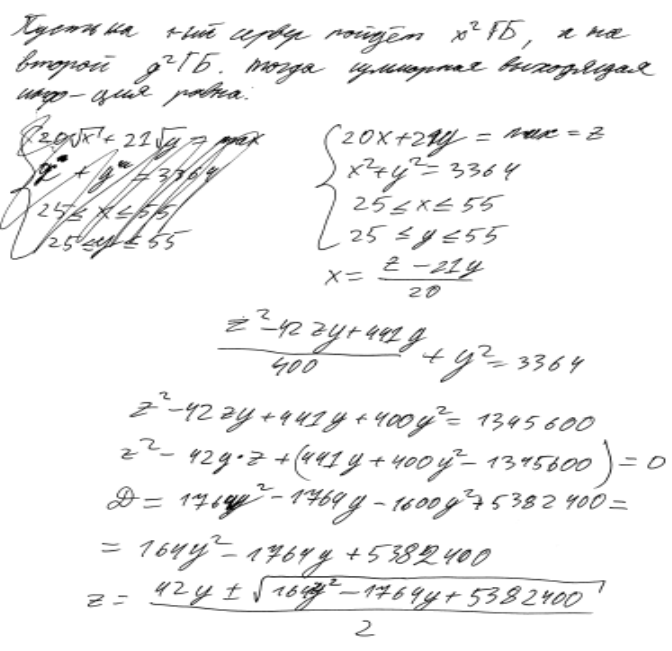 Пусть на 1-ый сервер пойдём x² ГБ, а на
второй y² ГБ. Тогда суммарная выходящая
инф-ция равна:
20√x + 21√y = max
+ y = 3364
25 ≤ x ≤ 55
25 ≤ y ≤ 55
20x + 21y = max = z
x² + y² = 3364
25 ≤ x ≤ 55
25 ≤ y ≤ 55
x = (z - 21y)/20
(z² - 42zy + 441y)/400 + y² = 3364
z² - 42zy + 441y + 400y² = 1345600
z² - 42y·z + (441y + 400y² - 1345600) = 0
D = 1764y² - 1764y - 1600y² + 5382400 =
= 164y² - 1764y + 5382400
z = (42y ± √(164y² - 1764y + 5382400))/2